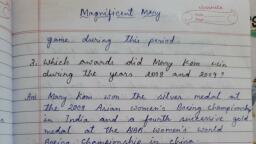 Magnificent Mary
game during this period.
3. Which awards did Mary Kom win
during the years 2008 and 2009?
Ans Mary Kom won the silver medal at
the 2008 Asian Women's Boxing Championship
in India and a fourth successive gold
medal at the AIBA Women's World
Boxing Championship in China